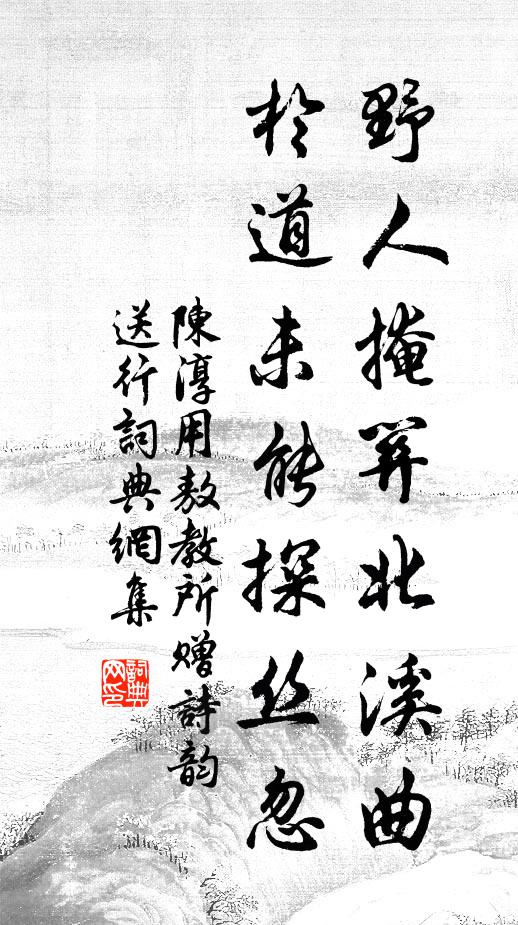 野人掩羿北溪曲
於道未能探丝忽
陳淳用敖教所赠詩韵
送行詞典網集
詞典网印